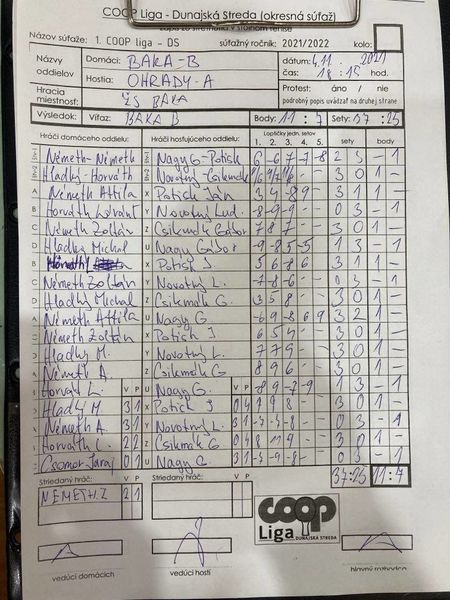 COOP Liga - Dunajská Streda (okresná súťaž)
Názov súťaže: 1. COOP liga - DS súťažný ročník: 2021/2022 kolo:
Názvy oddielov Domáci: BAKA-B dátum: 4.11. 2021
Hostia: OHRADY-A čas: 18:15 hod.
Hracia miestnosť: ZŠ BAKA Protest: áno / nie
podrobný popis uvádzať na druhej strane
Výsledok: Víťaz: BAKA B Body: 11 : 7 Sety: 37:25
Hráči domáceho oddielu: Hráči hosťujúceho oddielu: Loptičky jedn. setov sety body
1. 2. 3. 4. 5.
Németh-Németh Nagy G-Potish 6 -6 -7 7 -8 2 3 - 1
Hladky-Horváth Novotny-Csikmák 3 0 1 -
A Németh Attila X Potish Ján 3 1 1 -
B Horváth Y Novotny Lud. -8 -9 -9 - - 0 3 - 1
C Németh Zoltán Z Csikmák Gábor 7 8 7 - - 3 0 1 -
D Hladky Michal U Nagy Gábor -9 -8 5 -5 1 3 - 1
B X Potish J. 5 6 -8 6 3 1 1 -
C Németh Zoltán Y Novotny L. -7 -8 -6 - - 0 3 - 1
D Hladky Michal Z Csikmák G. 3 5 8 - - 3 0 1 -
A Németh Attila U Nagy G. -6 9 -8 6 9 3 2 1 -
C Németh Zoltán X Potish J 6 5 4 - - 3 0 1 -
D Hladky M. Y Novotny L. 7 7 9 - - 3 0 1 -
A Németh A. Z Csikmák G. 8 9 6 - - 3 0 1 -
B Horváth L. V P U Nagy G. V P -8 9 -7 -9 1 3 - 1
Hladky M. 3 1 X Potish J 0 4 7 9 8 - - 3 0 1 -
Németh A. 3 1 Y Novotny L. 3 1 0 3 - 1
Horváth L. 2 2 Z Csikmák G 0 4 8 11 9 - - 3 0 1 -
0 1 U Nagy G. 3 1 0 3 - 1
Striedaný hráč: V P Striedaný hráč: V P 37:25 11:7
NÉMETH Z 2 1
coop Liga DUNAJSKÁ STREDA
vedúci domácich vedúci hostí hlavný rozhodca